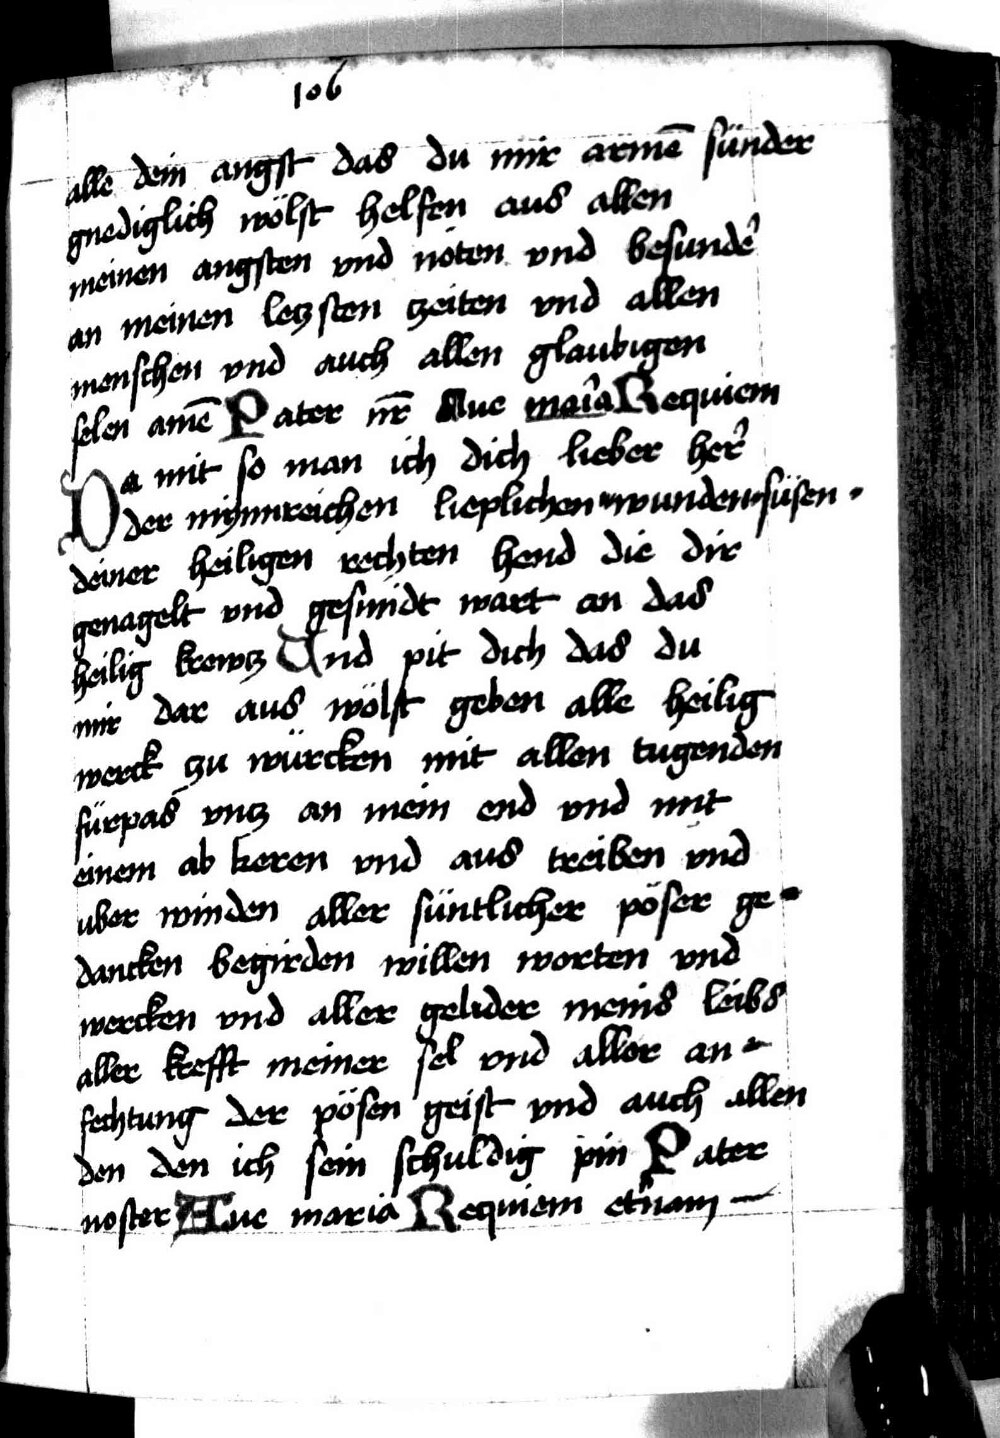 106
alle dein angst das du mir armē sünder
gnediglich wölst helfen aus allen
meinen angsten vnd nöten vnd besunde᷑
an meinen letzsten tzeiten vnd allen
menschen vnd auch allen glaubigen
selen amē Pater nr̄ Aue maria Requiem
Da mit so man ich dich lieber her᷑
der mynnreichen lieplichen wunden süsen
deiner heiligen rechten hend die dir
genagelt vnd gesmidt wart an das
heilig krewtz Vnd pit dich das du
mir dar aus wölst geben alle heilig
werck tzu würcken mit allen tugenden
fürpas vntz an mein end vnd mit
einem ab keren vnd aus treiben vnd
uber winden aller süntlicher pöser ge-
dancken begirden willen worten vnd
wercken vnd aller gelider meins leibs
aller krefft meiner sel vnd aller an-
fechtung der pösen geist vnd auch allen
den den ich sein schuldig pin Pater
noster Aue maria Requiem et᷑nam